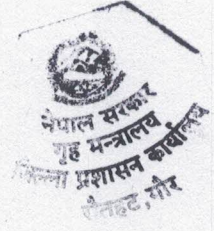 नेपाल सरकार
गृह मन्त्रालय
जिल्ला प्रशासन कार्यालय
रौतहट, गौर